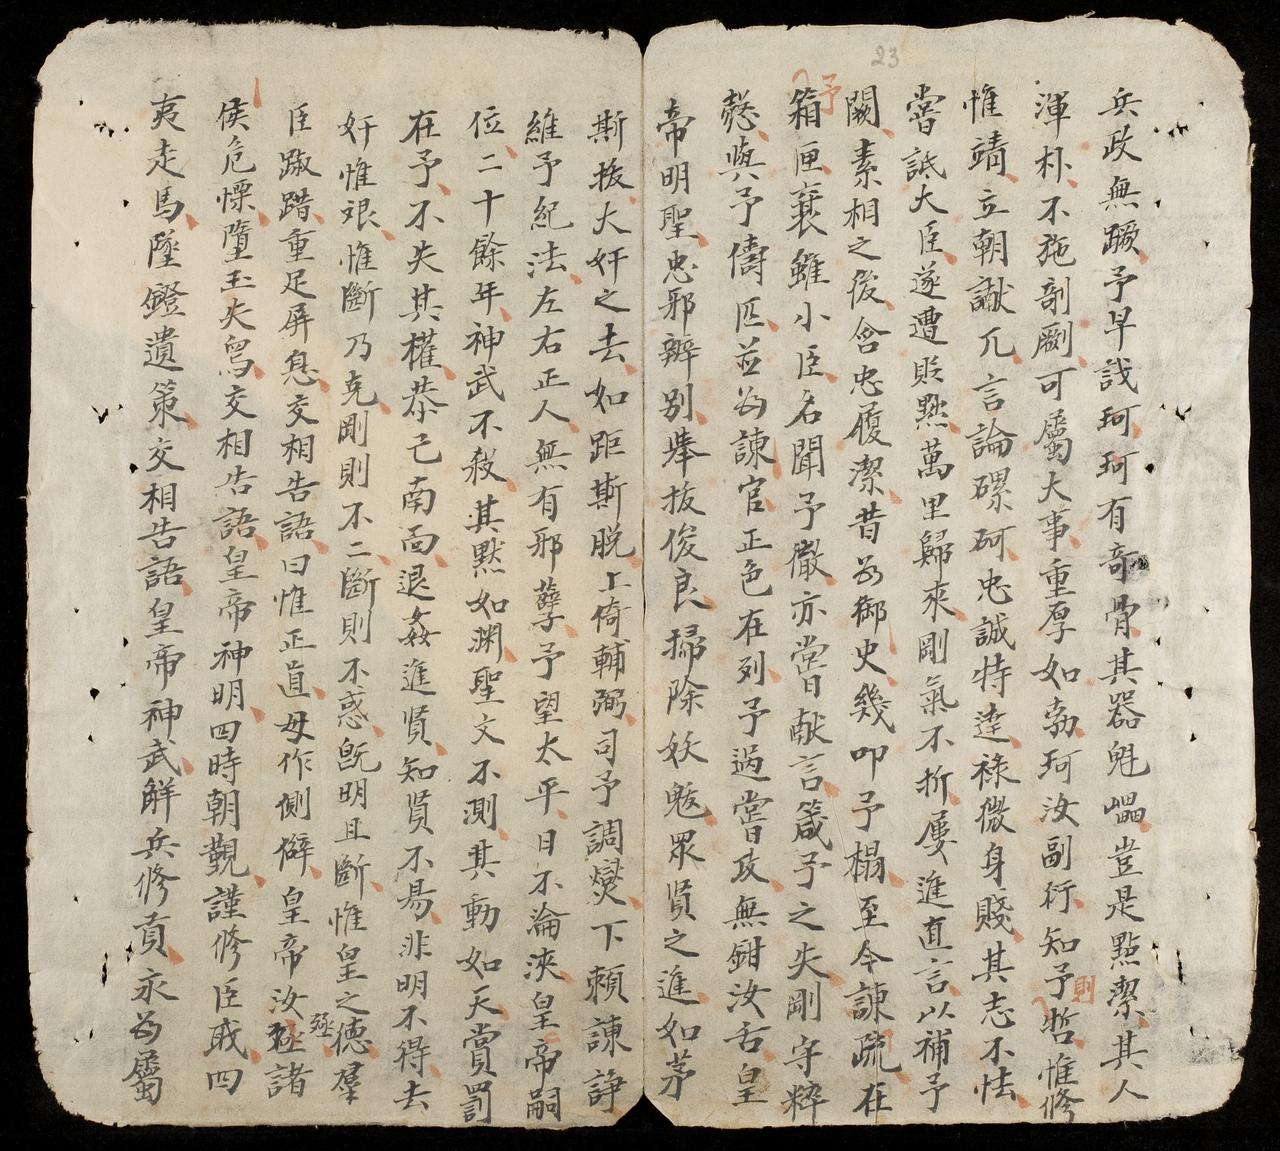 23
兵政無蹶予早識珂珂有奇骨其器魁礧豈是㸃潔其人
渾朴不施剞劂可屬大事重厚如勃珂汝副行知予哲惟修
則
惟靖立朝讞兀言論磥砢忠誠特達祿微身賤其志不怯
甞詆大臣遂遭貶黜萬里歸來剛氣不折屢進直言以補予
闕素相之後含忠履潔昔爲御史幾叩予榻至今諫疏在
予
箱匣襄雖小臣名聞予徹亦嘗献言箴予之失剛守粹
慤與予儔匹並爲諫官正色在列予過嘗攻無鉗汝舌皇
帝明聖忠邪辨别舉拔俊良掃除妖魃眾賢之進如茅
斯拔大奸之去如距斯脱上倚輔弼司予調爕下賴諫諍
維予紀法左右正人無有邪孽予望太平日不淪浹皇帝嗣
位二十餘年神武不殺其默如渊聖文不測其動如天賞罰
在予不失其權恭己南面退姦進賢知賢不易非明不得去
奸惟艰惟斷乃克剛則不二斷則不惑既明且斷惟皇之德羣
臣踧踖重足屏息交相告語曰惟正直毋作側僻皇帝汝殛諸
殛
侯危慄墮玉失舄交相告語皇帝神明四時朝觀謹修臣戚四
夷走馬墜鐙遺策交相告語皇帝神武解兵修貢永爲屬